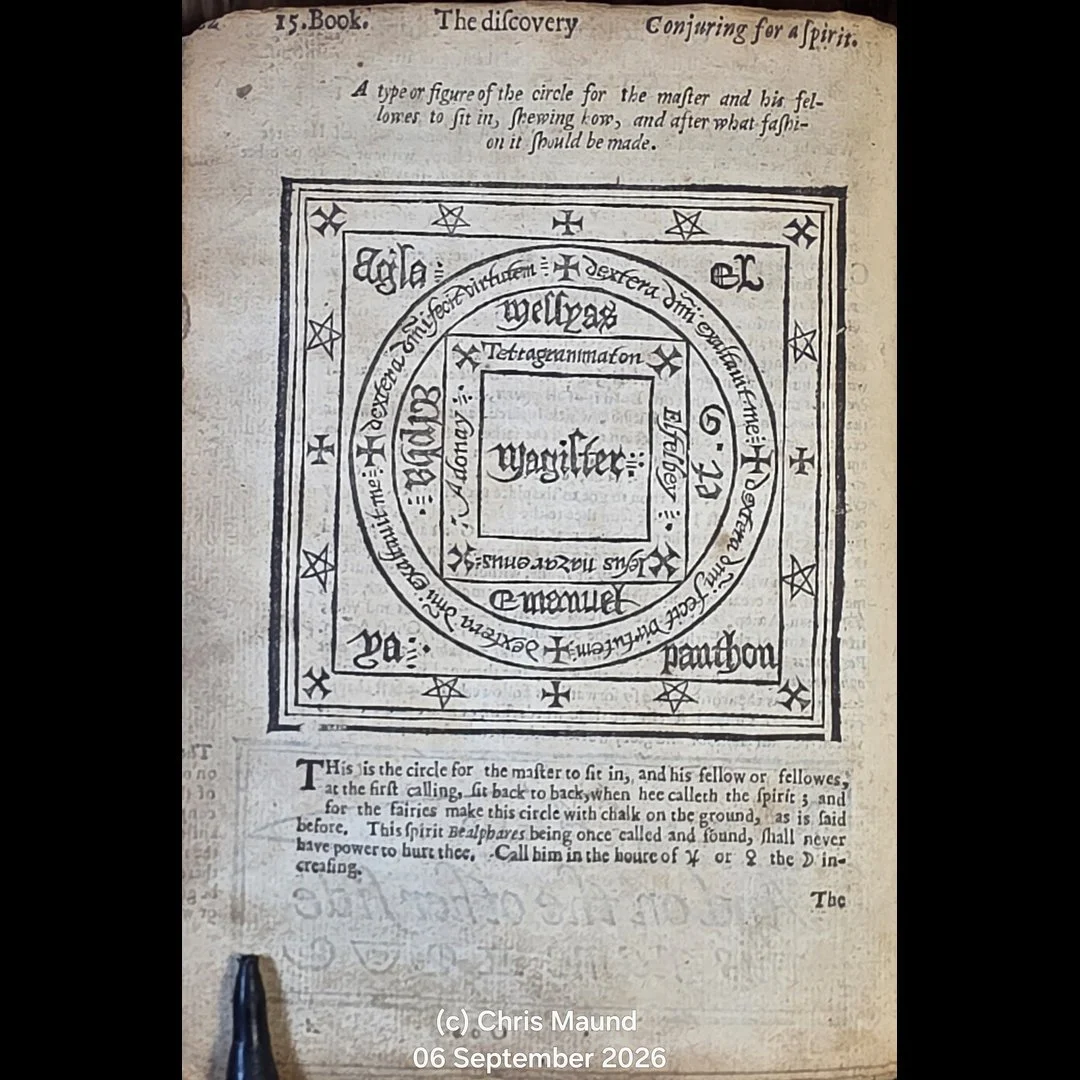 15.Book.
The diſcovery
Conjuring for a ſpirit.
A type or figure of the circle for the maſter and his fel-
lowes to ſit in, ſhewing how, and after what faſhi-
on it ſhould be made.
Agla
EL
dextera dñi fecit virtutem
dextera dñi exaltauit me
Meſſyas
Tetragrammaton
Alpha
Adonay
Magiſter
Eſcerchy
Jeſus nazarenus
Emanuel
dextera dñi exaltauit me
dextera dñi fecit virtutem
ya
panthon
THis is the circle for the maſter to ſit in, and his fellow or fellowes,
at the firſt calling, ſit back to back, when hee calleth the ſpirit; and
for the fairies make this circle with chalk on the ground, as is ſaid
before. This ſpirit Bealphares being once called and found, ſhall never
have power to hurt thee. Call him in the houre of ♃ or ♀ the ☽ in-
creaſing.
The
(c) Chris Maund
06 September 2026